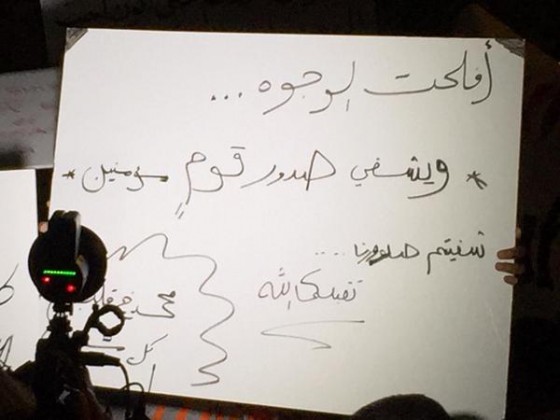 أفلحت الوجوه ...
* ويشفي صدور قومٍ مؤمنين *
شفيتم صدورنا ....
تقبلكم الله
محمد في قلب
كل